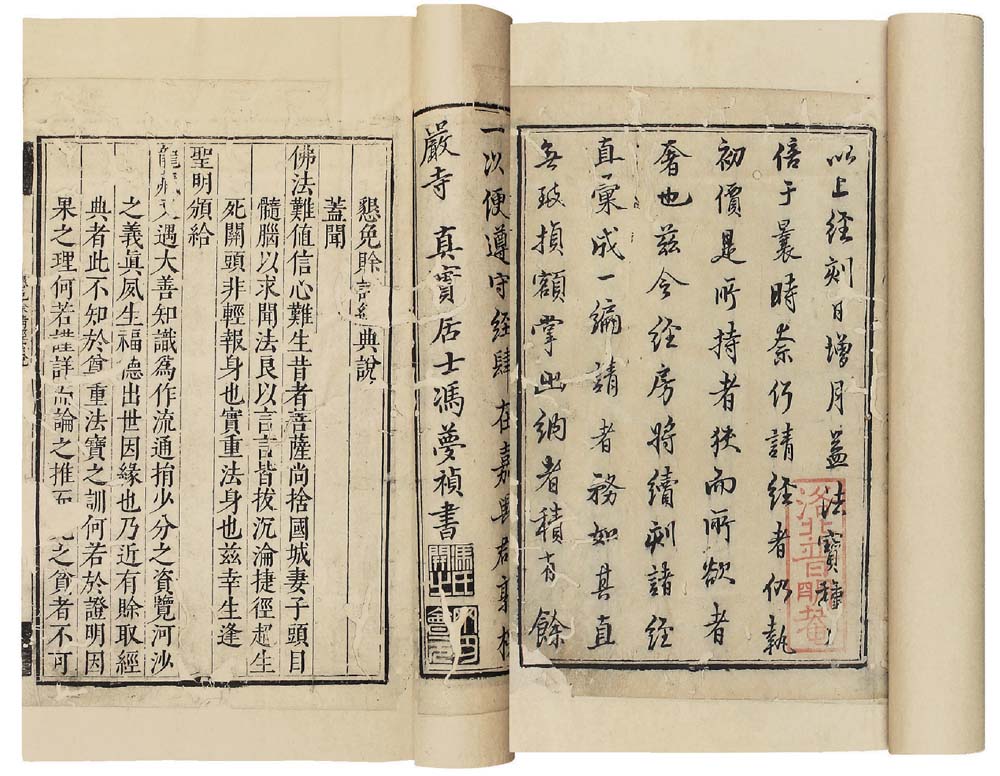 以上經刻日增月益法寶種々
倍于曩時奈何請經者仍執
初價是所持者狹而所欲者
奢也茲令經房將續刻諸經
直彙成一編請者務如其直
無致損額掌出納者積有餘
洛北普明菴
一以便遵守經肆在嘉興
嚴寺 真實居士馮夢禎書
馮氏開之
懇免賒請經典說
蓋聞
佛法難值信心難生昔者菩薩尚捨國城妻子頭目
髓腦以求聞法良以言言皆拔沉淪捷徑超生
死關頭非輕報身也實重法身也茲幸生逢
聖明頒給
龍藏又遇大善知識爲作流通捐少分之資覽河沙
之義眞夙生福德出世因緣也乃近有賒取經
典者此不知於尊重法寶之訓何若於證明因
果之理何若詳而論之推之貧者不可